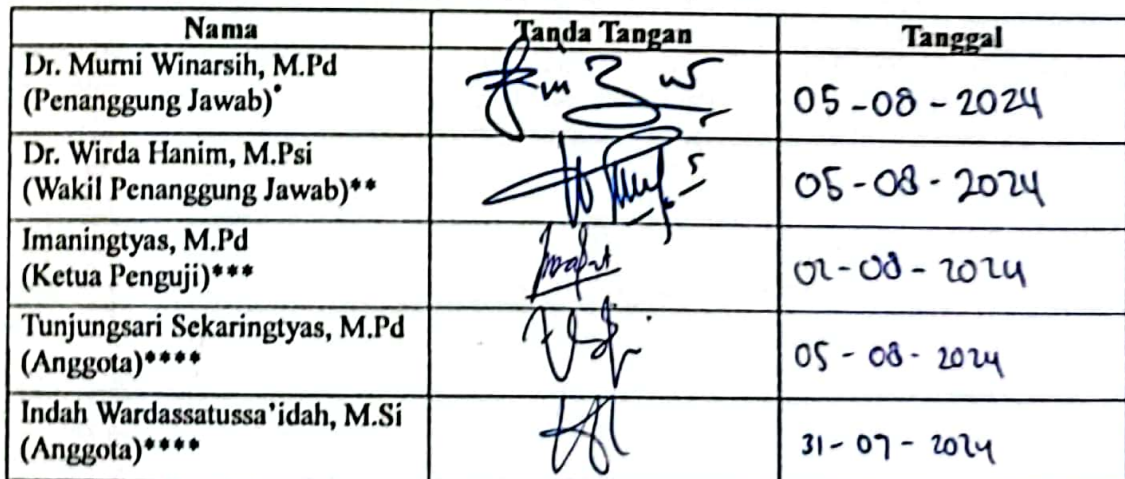 Nama Tanda Tangan Tanggal
Dr. Murni Winarsih, M.Pd
(Penanggung Jawab)* 05-08-2024
Dr. Wirda Hanim, M.Psi
(Wakil Penanggung Jawab)** 05-08-2024
Imaningtyas, M.Pd
(Ketua Penguji)*** 02-08-2024
Tunjungsari Sekaringtyas, M.Pd
(Anggota)**** 05-08-2024
Indah Wardassatussa'idah, M.Si
(Anggota)**** 31-07-2024